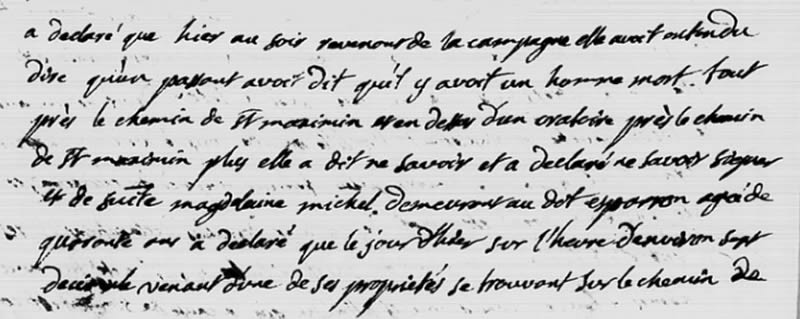 a declaré que hier au soir revenant de la campagne elle avoit entendu
dire qu'un passant avoit dit qu'il y avoit un homme mort tout
près le chemin de St maximin en dessus d'un oratoire près le chemin
de St maximin plus elle a dit ne savoir et a declaré ne savoir signer
Et de suitte magdeleine michel demeurant au dot esparron agée de
quarante ans a declaré que le jour d'hier sur l'heure d'environ sept
venant d'une de ses proprietés se trouvant sur le chemin de